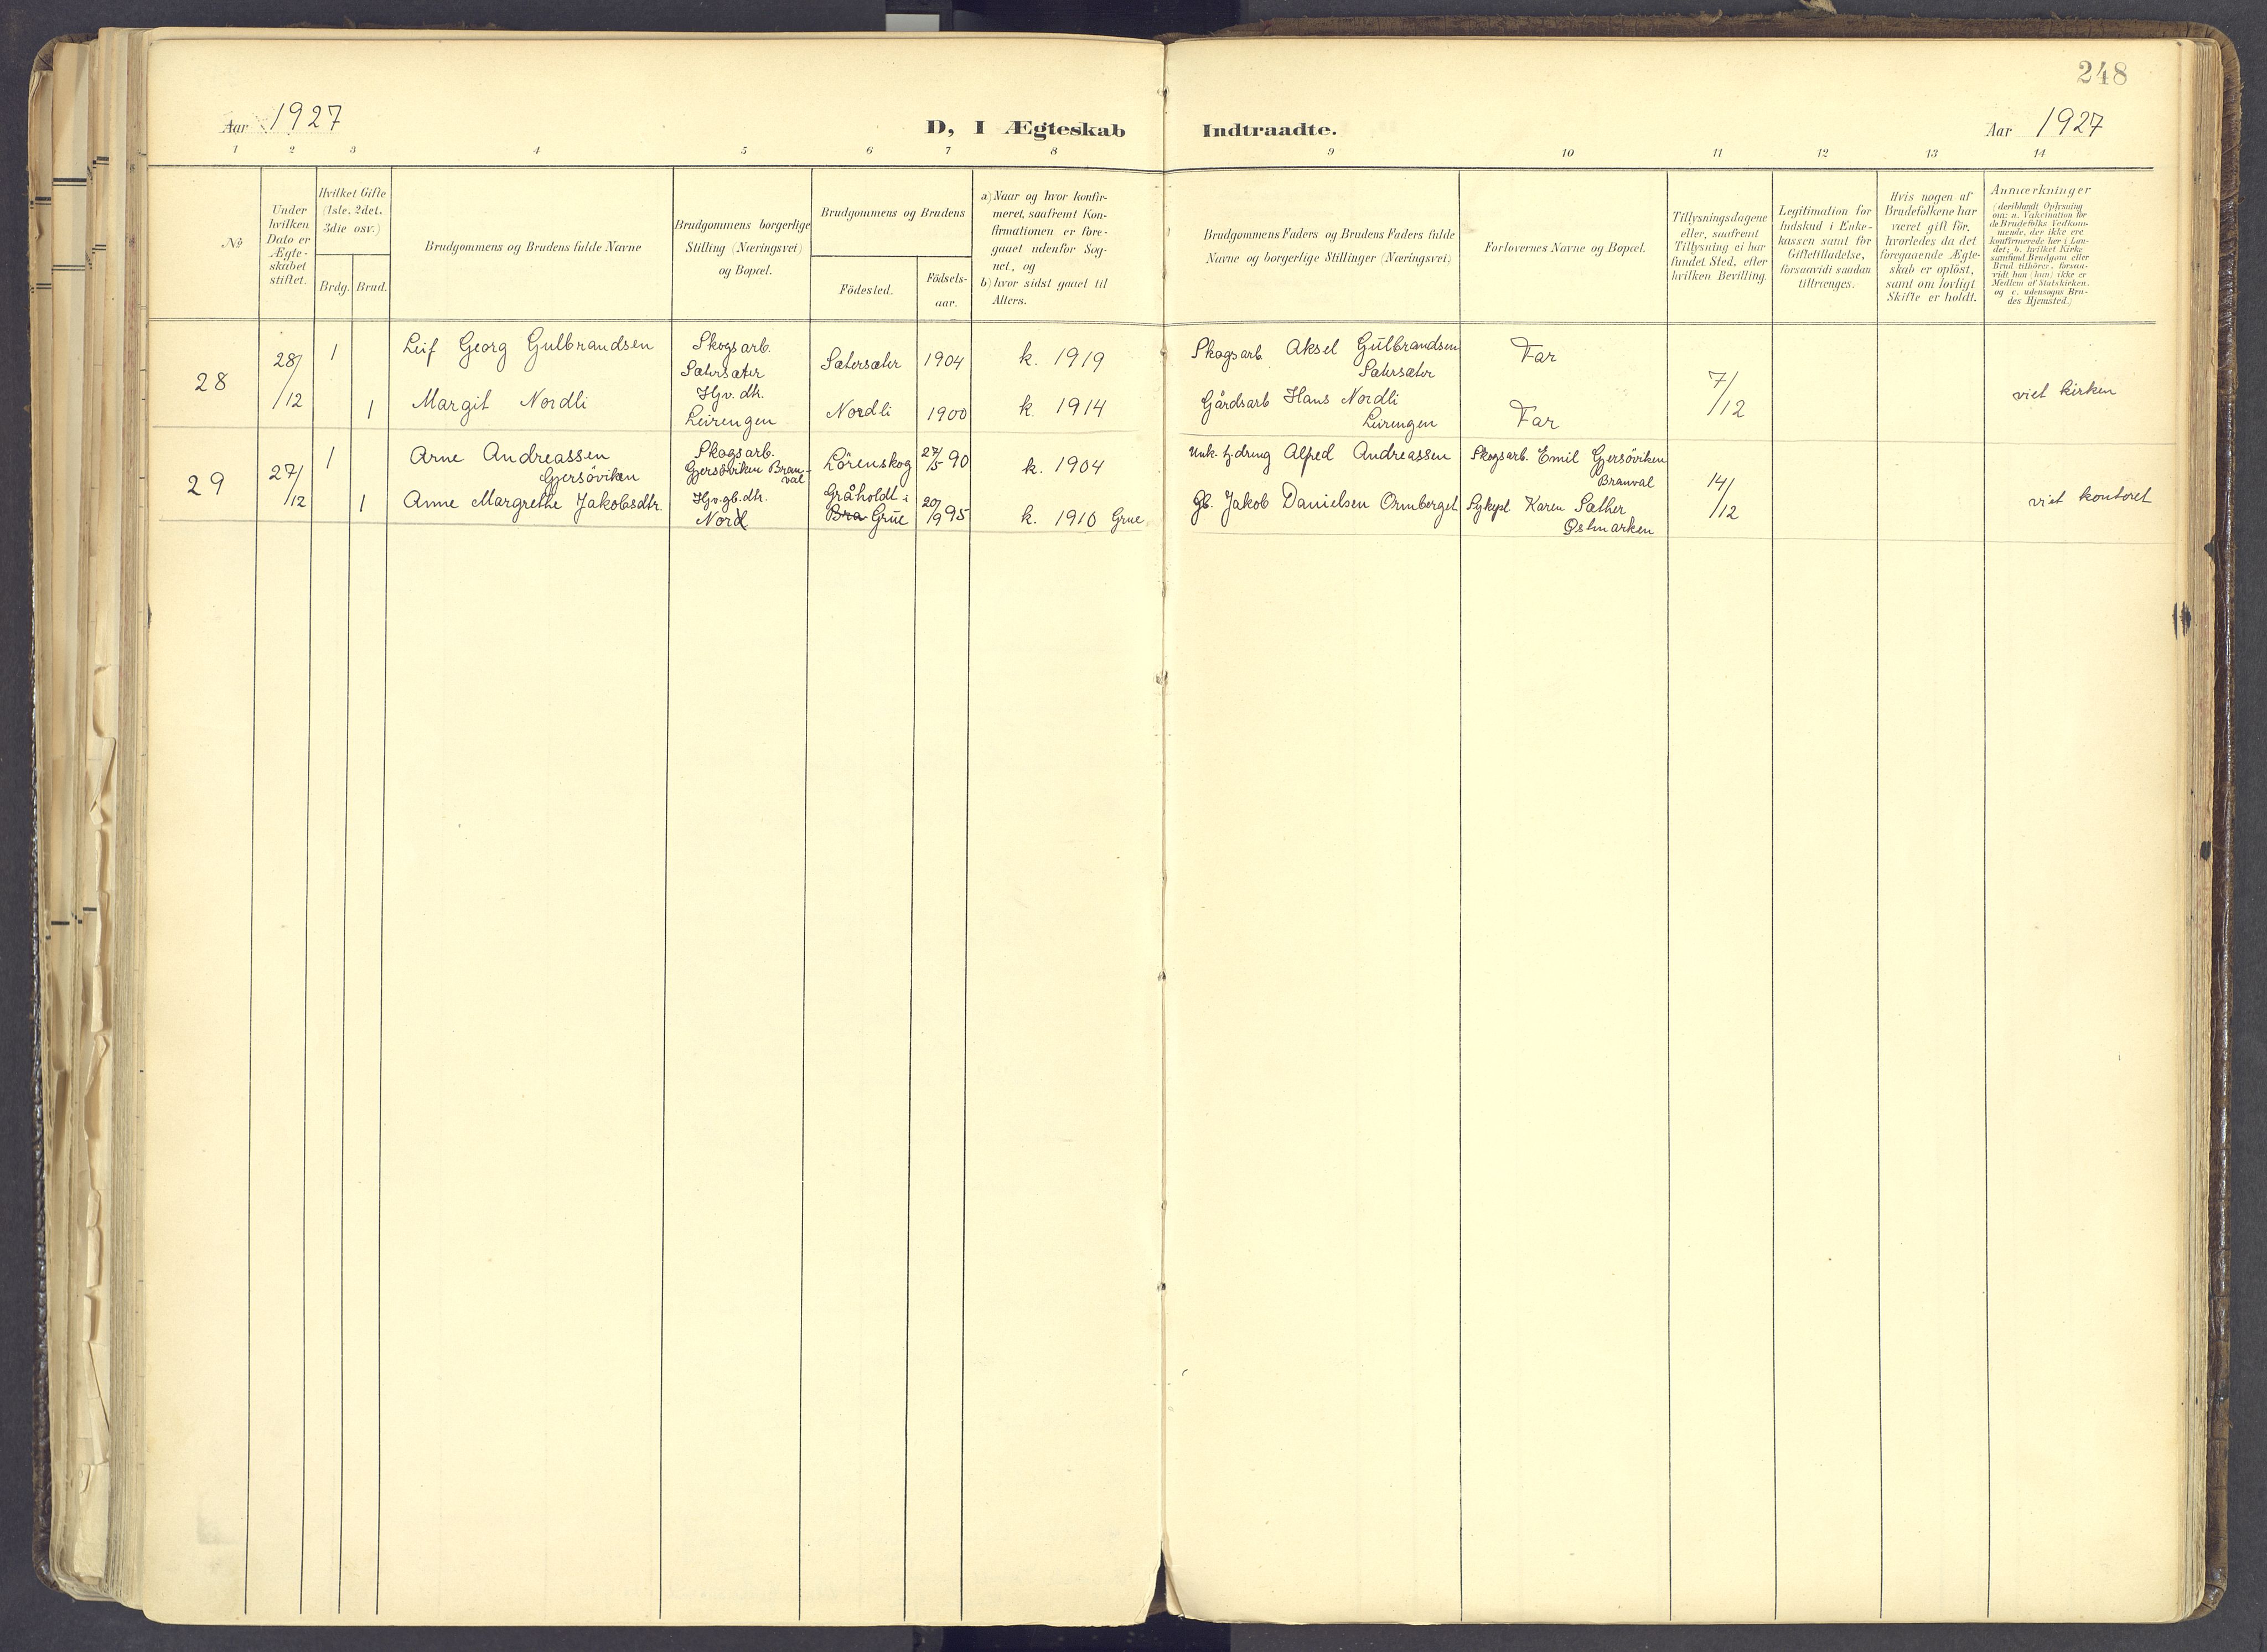 248
Aar 1927
D, I Ægteskab Indtraadte.
Aar 1927
1 2 3 4 5 6 7 8 9 10 11 12 13 14
№
Under hvilken Dato er Ægte-skabet stiftet.
Hvilket Gifte (1ste, 2det, 3die osv.)
Brdg. Brud.
Brudgommens og Brudens fulde Navne
Brudgommens borgerlige
Stilling (Næringsvei)
og Bopæl.
Brudgommens og Brudens
Födested.
Födsels-
aar.
a) Naar og hvor konfir-
meret, saafremt Kon-
firmationen er fore-
gaaet udenfor Sog-
net, og
b) hvor sidst gaaet til
Alters.
Brudgommens Faders og Brudens Faders fulde
Navne og borgerlige Stillinger (Næringsvei)
Forlovernes Navne og Bopæl.
Tillysningsdagene
eller, saafremt
Tillysning ei har
fundet Sted, efter
hvilken Bevilling.
Legitimation for
Indskud i Enke-
kassen samt for
Giftetilladelse,
forsaavidt saadan
tiltrænges.
Hvis nogen af
Brudefolkene har
været gift för,
hvorledes da det
foregaaende Ægte-
skab er oplöst,
samt om lovligt
Skifte er holdt.
Anmærkninger
(deriblandt Oplysning
om: a. Vakcination for
de Brudefolks Vedkom-
mende, der ikke ere
konfirmerede her i Lan-
det; b. hvilket Kirke
samfund Brudgom eller
Brud tilhörer, forsaa-
vidt han (hun) ikke er
Medlem af Statskirken,
og c. udensogns Bru-
des Hjemsted.)
28
28/12
1
Leif Georg Gulbrandsen
Skogsarb.
Sætersæter
Sætersæter
1904
k. 1919
Skogsarb. Aksel Gulbrandsen
Sætersæter
Far
7/12
viet kirken
1
Margit Nordli
Hjv. dtr.
Leirengen
Nordli
1900
k. 1914
Gårdsarb Hans Nordli
Leirengen
Far
29
27/12
1
Arne Andreassen
Gjersöviken
Skogsarb.
Gjersöviken Bran-
val
Lörenskog
27/5 90
k. 1904
Alfred Andreassen
Skogsarb. Emil Gjersöviken
Branval
14/12
viet kontoret
1
Anne Margrethe Jakobsdtr.
Hjv. gb. dtr.
Nord
Gråholdt i
Bra Grue
20/9 95
k. 1910 Grue
gb. Jakob Danielsen Ormberget
Sykepl Karen Sæther
Østmarken